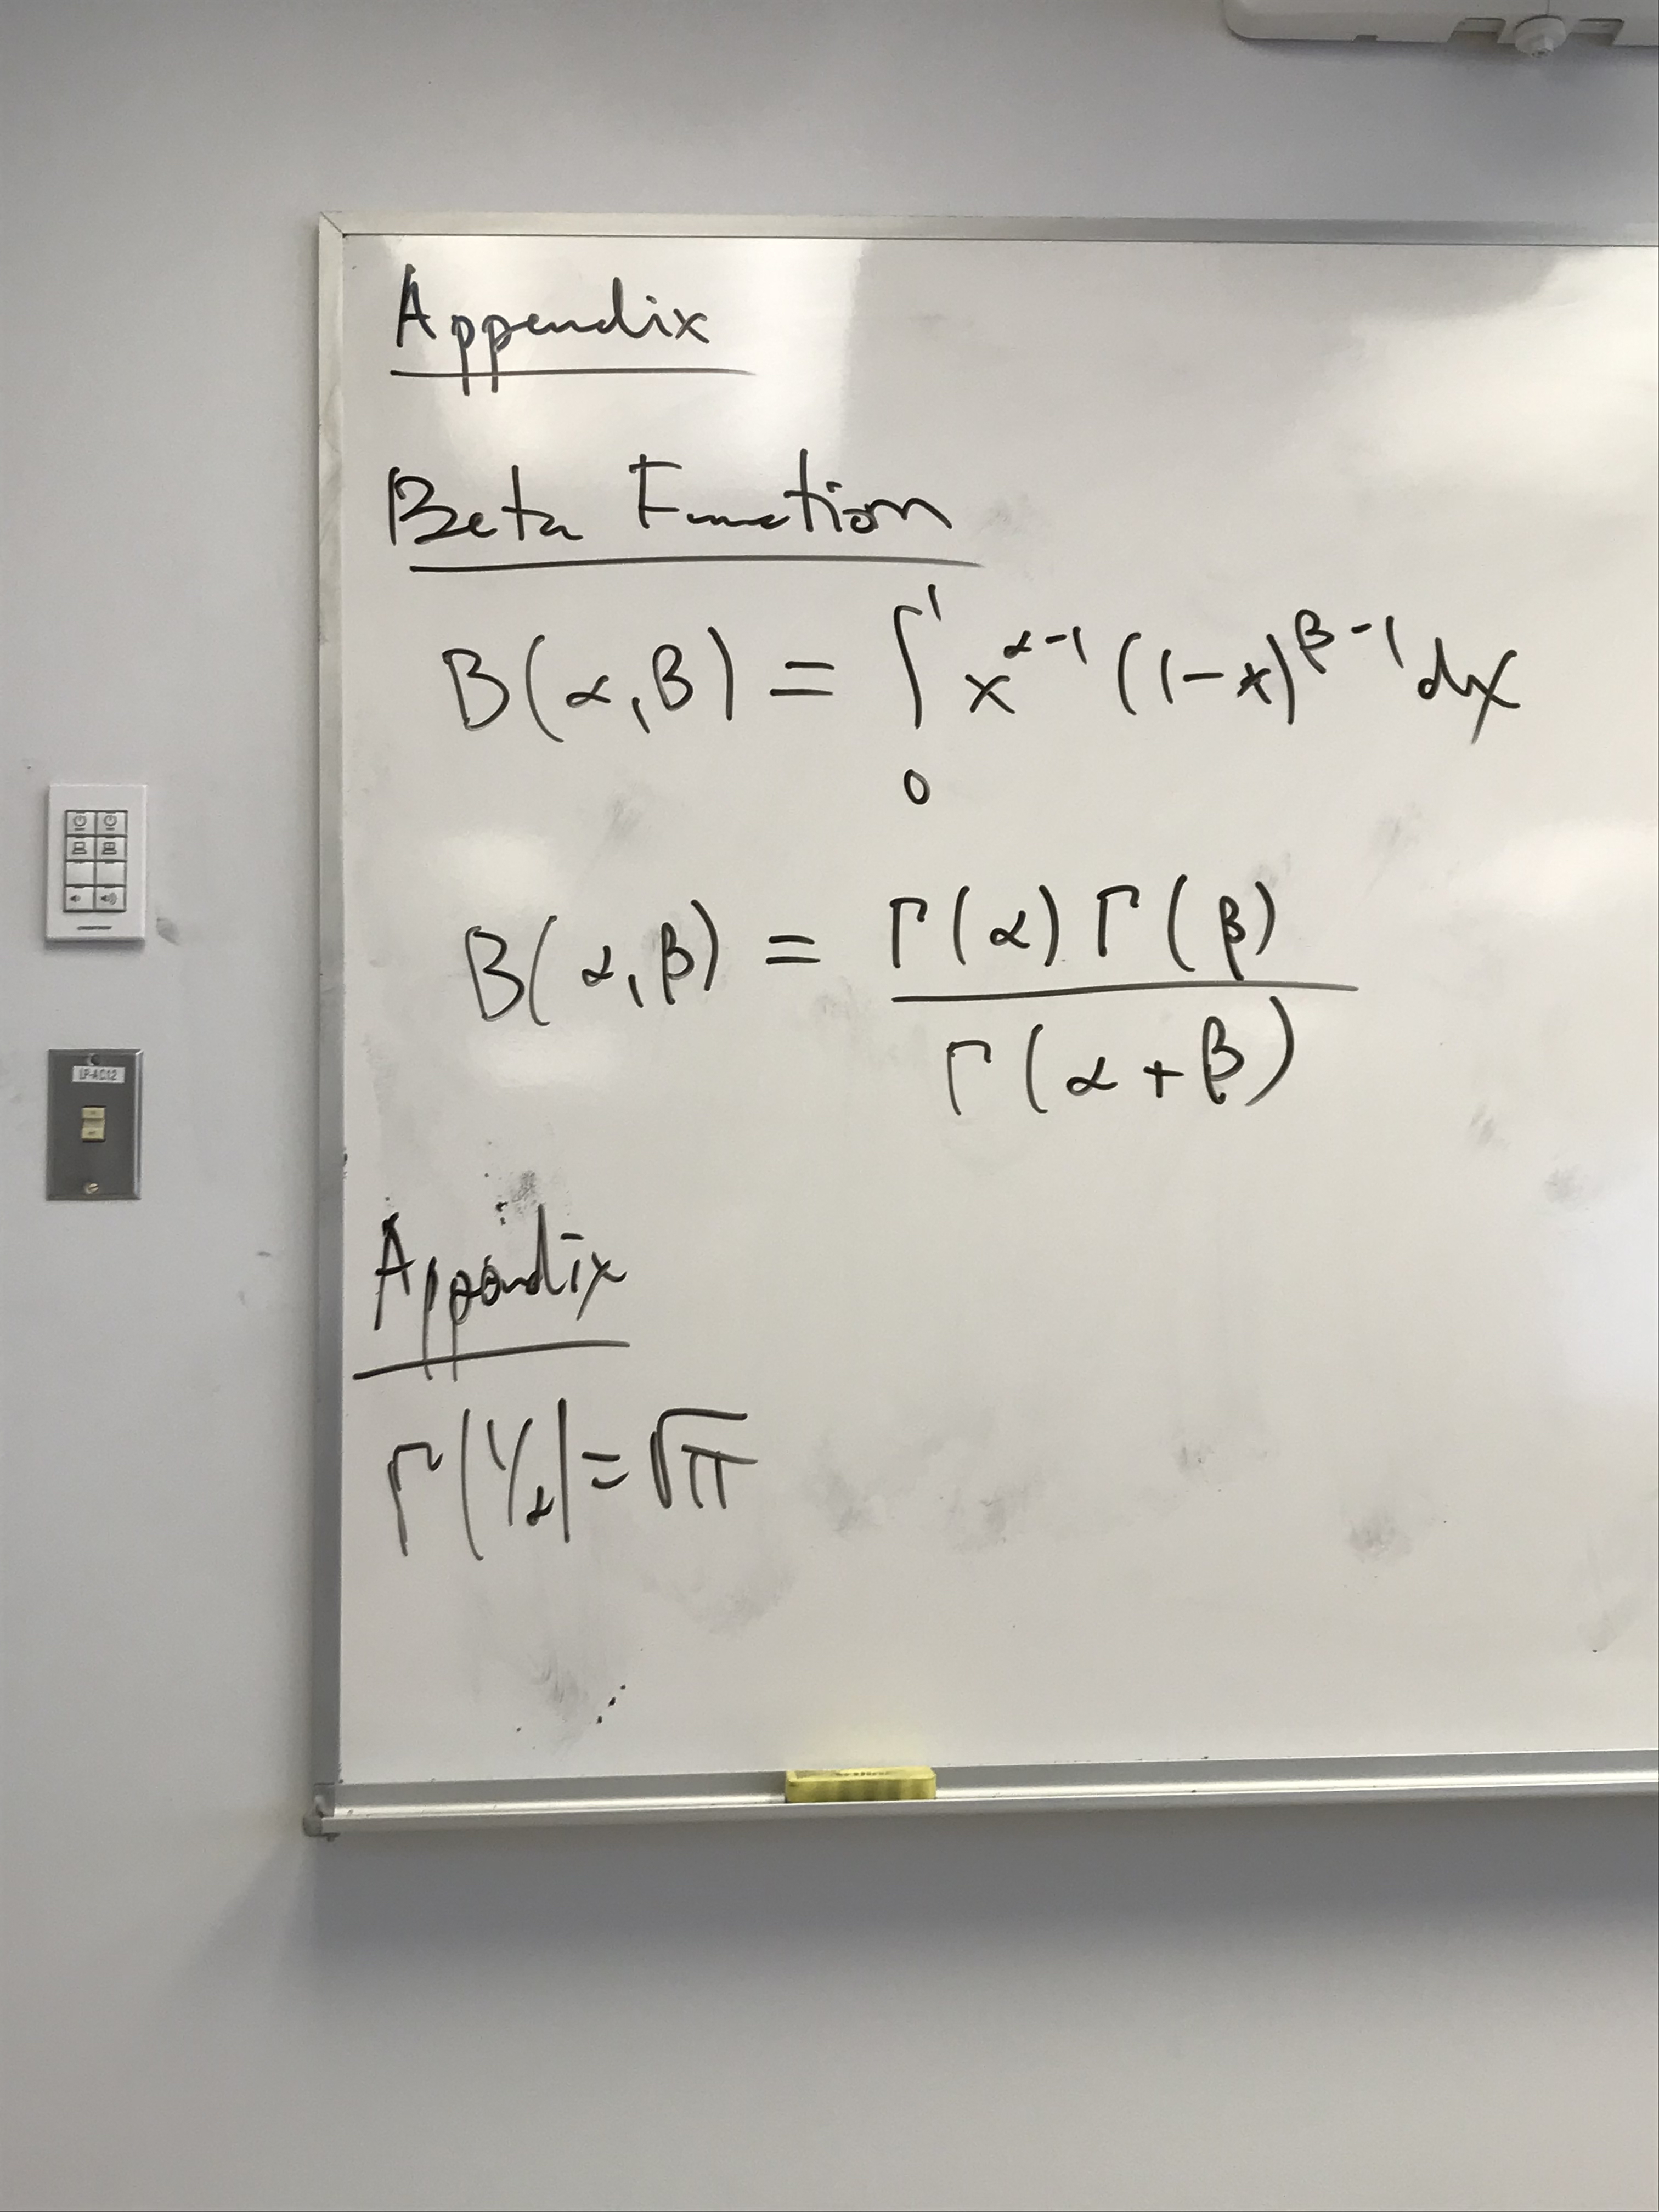 Appendix
Beta Function
B(α,β) = ∫₀¹ x^{α-1} (1-x)^{β-1} dx
B(α,β) = Γ(α) Γ(β) / Γ(α+β)
LP-AC12
Appendix
Γ(1/2) = √π